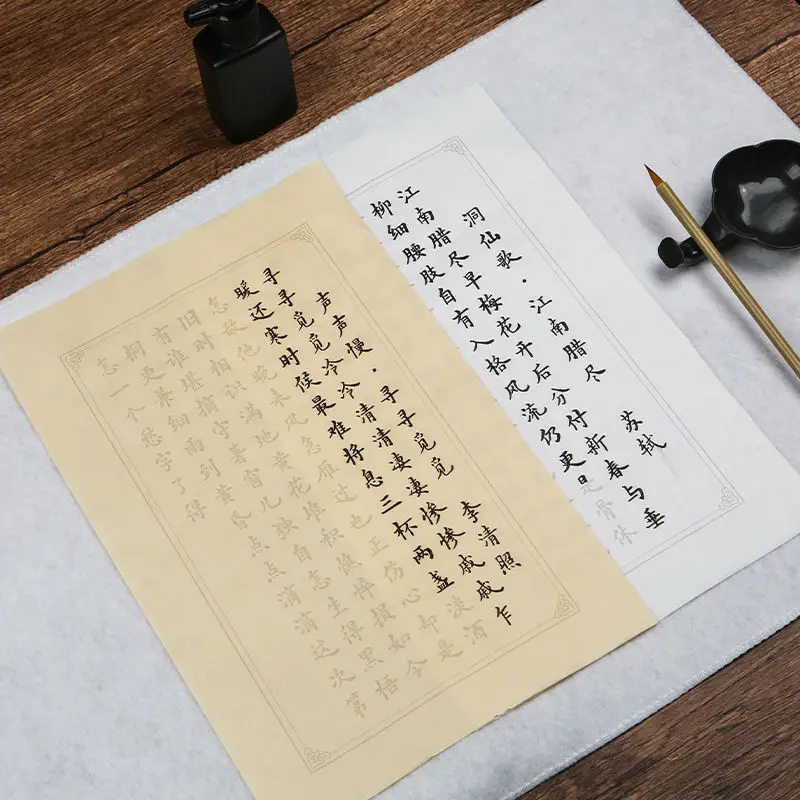 洞仙歌·江南腊尽 苏轼
江南腊尽早梅花开后分付新春与垂
柳细腰肢自有入格风流仍更是骨体
声声慢·寻寻觅觅 李清照
寻寻觅觅冷冷清清凄凄惨惨戚戚乍
暖还寒时候最难将息三杯两盏淡酒
怎敌他晚来风急雁过也正伤心却是
旧时相识满地黄花堆积憔悴损如今
有谁堪摘守着窗儿独自怎生得黑梧
桐更兼细雨到黄昏点点滴滴这次第
怎一个愁字了得